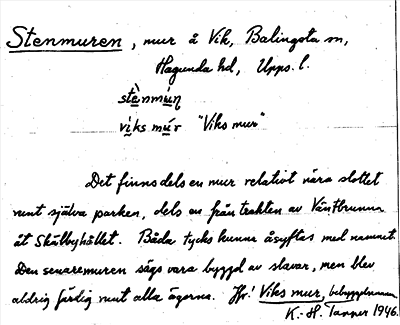 Stenmuren, mur å Vik, Balingsta sn,
Hagunda hd, Upps. l.
stènmúṇ
vìks múr "Viks mur"
Det finns dels en mur relativt nära slottet
runt själva parken, dels en från trakten av Väntbrunna
åt Skälbyhållet. Båda tycks kunna åsyftas med namnet.
Den senare muren sägs vara byggd av slavar, men blev
aldrig färdig runt alla ägorna. Jfr. Viks mur, bebyggelsenamn
K.-H. Tanner 1946.